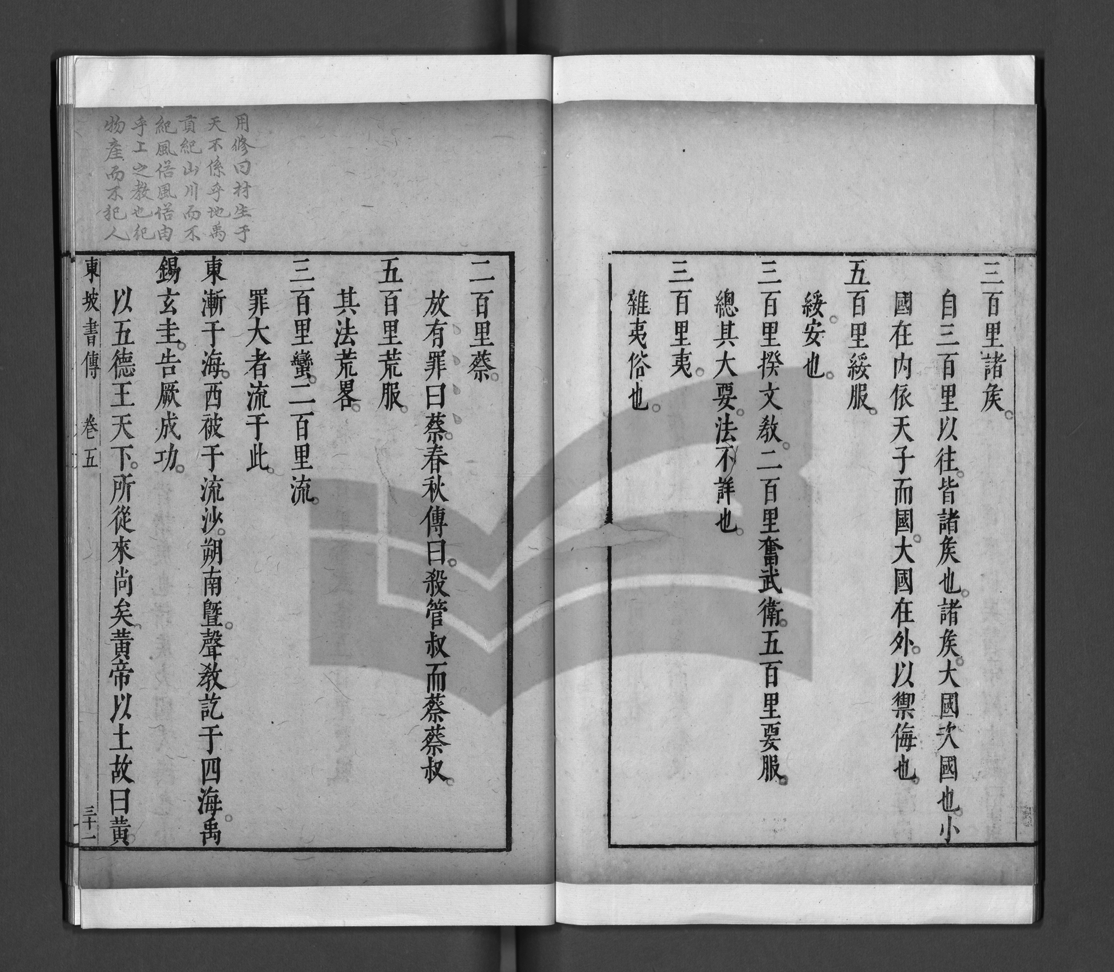 三百里諸矦。
自三百里以往。皆諸矦也。諸矦。大國次國也。小
國在內。依天子而國。大國在外。以禦侮也。
五百里綏服。
綏。安也。
三百里揆文敎。二百里奮武衛。五百里要服。
總其大要。法不詳也。
三百里夷。
雜夷俗也。
二百里蔡。
放有罪曰蔡。春秋傳曰。殺管叔而蔡蔡叔。
五百里荒服。
其法荒畧。
三百里蠻。二百里流。
罪大者流于此。
東漸于海。西被于流沙。朔南曁。聲敎訖于四海。禹
錫玄圭。告厥成功。
以五德王天下。所從來尚矣。黃帝以土故曰黃。
東坡書傳 卷五 三十一
用修曰材生于
天不係乎地禹
貢紀山川而不
紀風俗風俗由
乎工之教也紀
物產而不犯人